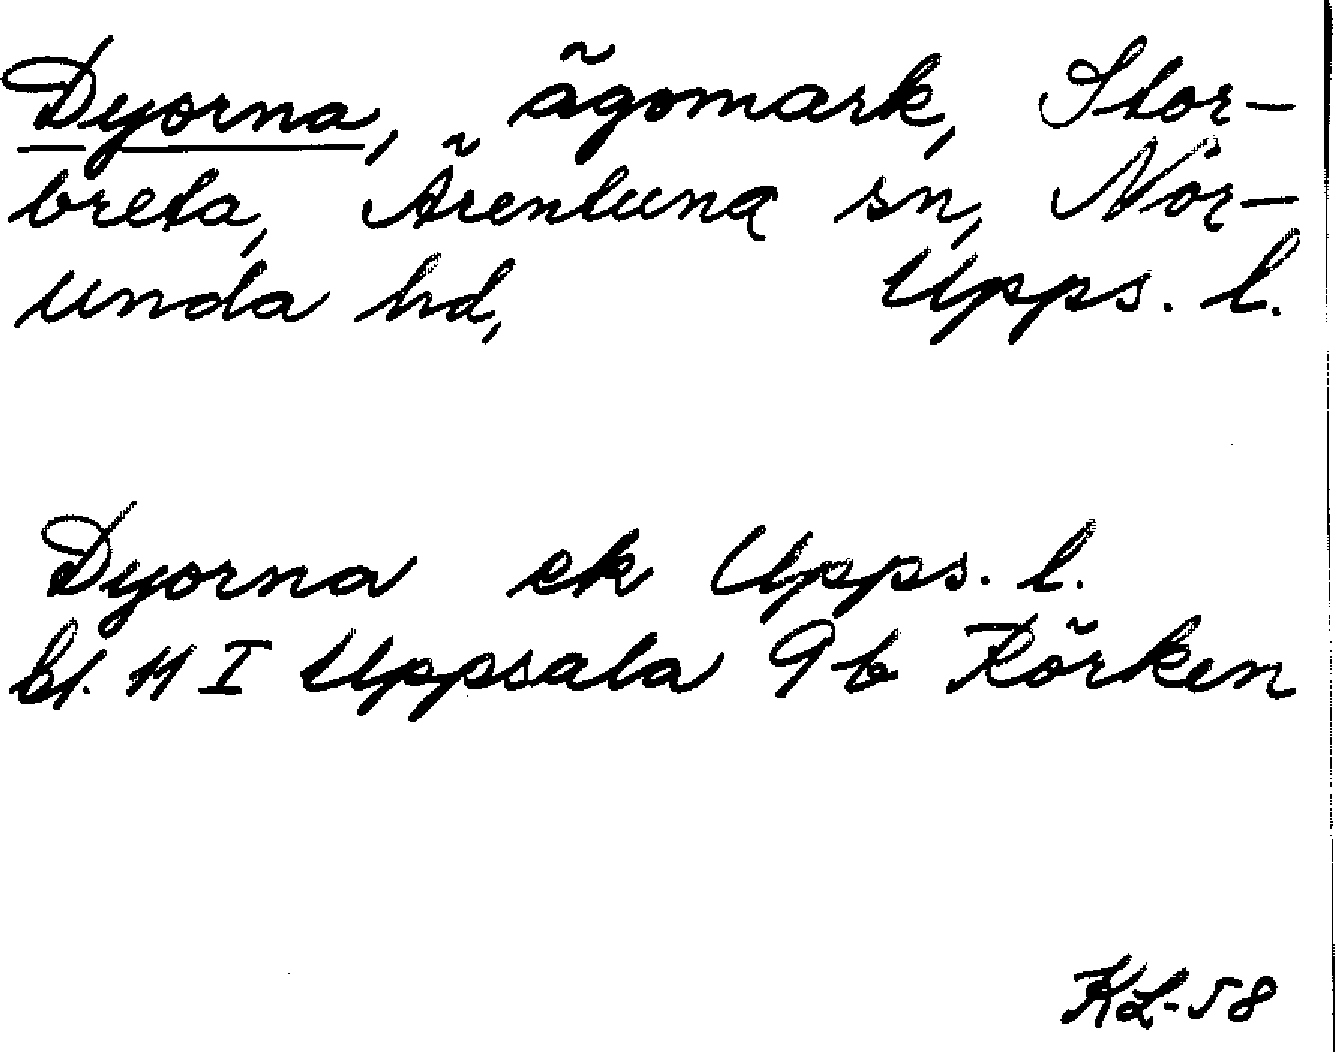 Dyorna, ägomark, Stor-
breta, Ärentuna sn, Nor-
unda hd, Upps. l.
Dyorna ek Upps. l.
bl. 11 I Uppsala 9b Rörken
KL-58